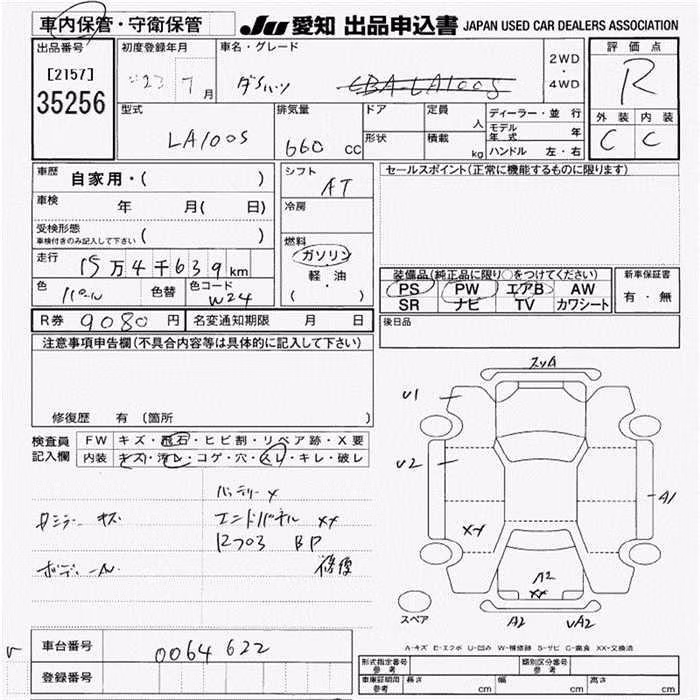 車内保管・守衛保管
JU 愛知 出品申込書 JAPAN USED CAR DEALERS ASSOCIATION
出品番号
[2157]
35256
初度登録年月
23 7 月
車名・グレード
ダイハツ CBA-LA100S
2WD
・
4WD
評価点
R
外装 内装
C C
型式
LA100S
排気量
660 cc
ドア
形状
定員
人
積載
kg
ディーラー・並行
モデル年式 年
ハンドル 左・右
車歴
自家用・( )
車検
年 月( 日)
受検形態
車検付きのみ記入して下さい ( )
走行
15万4千639km
色
パール
色替
色コード
W24
シフト
AT
冷房
燃料
ガソリン
軽・油
( ・ )
セールスポイント(正常に機能するものに限ります)
装備品(純正品に限り○をつけてください)
PS PW エアB AW
SR ナビ TV カワシート
新車保証書
有・無
後日品
R券 9080 円 名変通知期限 月 日
注意事項申告欄(不具合内容等は具体的に記入して下さい)
修復歴 有 (箇所 )
検査員
記入欄
FW キズ・飛石・ヒビ割・リペア跡・X要
内装 キズ・汚レ・コゲ・穴・スレ・キレ・破レ
バッテリーX
キズ エンドパネル XX
BP
修復
スリA
U1
U2
XX
A1
A2
XX
A2 UA2
スペア
A-キズ E-エクボ U-凹み W-補修跡 S-サビ C-腐食 XX-交換済
車台番号
0064622
登録番号
型式指定番号 参考
類別区分番号 参考
車庫証明用 参考 長さ cm 幅 cm 高さ cm